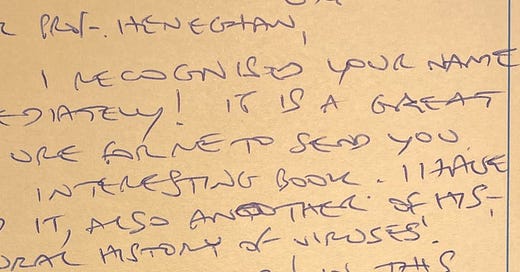 R PROF. HENEGHAN,
I RECOGNISED YOUR NAME
EDIATELY! IT IS A GREAT
URE FOR ME TO SEND YOU
INTERESTING BOOK. I HAVE
IT, ALSO ANOTHER OF HIS,
ORAL HISTORY OF VIRUSES'.
THIS